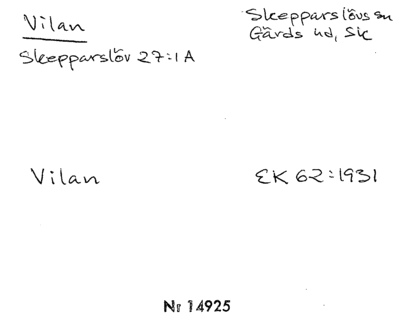 Vilan
Skepparslövs sn
Gärds hd, Sk
Skepparslöv 27:1A
Vilan
EK 62:1931
Nr 14925